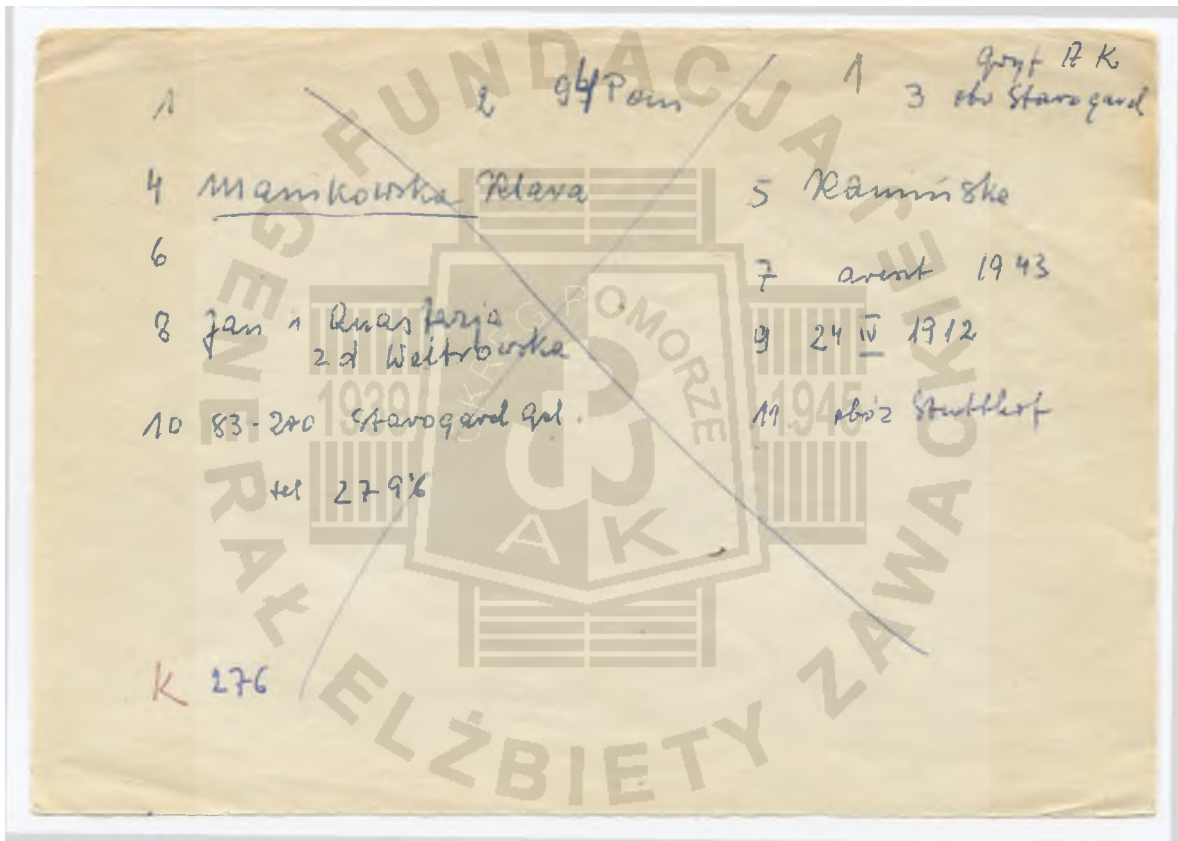 1 2 Pom 1 gryf A K
3 obw Starogard
4 Manikowska Klara 5 Kamińska
6
7 areszt 1943
8 Jan i Anastazja
z d 9 24 IV 1912
10 83-200 Starogard Gd. 11 obóz Stutthof
tel 2796
K 276
FUNDACJA GENERAŁ ELŻBIETY ZAWACKIEJ
OKRĘG POMORZE
1939 1945
AK